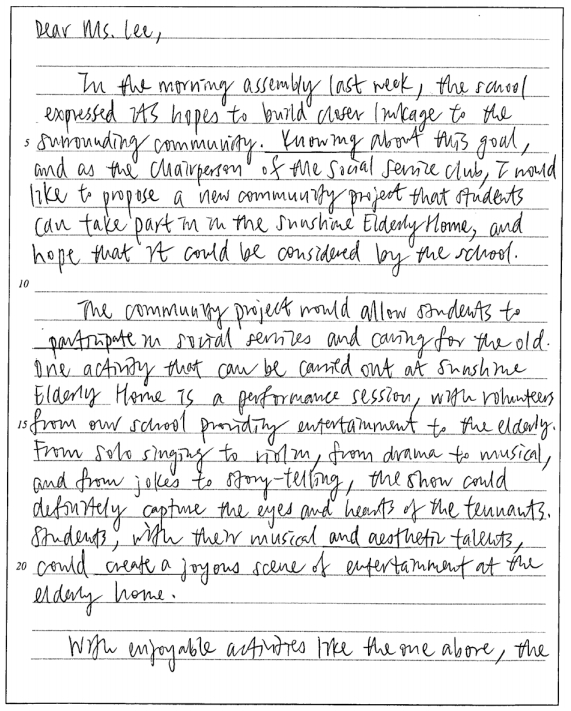 Dear Ms. Lee,
In the morning assembly last week, the school
expressed its hopes to build closer linkage to the
5 surrounding community. Knowing about this goal,
and as the Chairperson of the Social Service club, I would
like to propose a new community project that students
can take part in in the Sunshine Elderly Home, and
hope that it could be considered by the school.
10
The community project would allow students to
participate in social services and caring for the old.
One activity that can be carried out at Sunshine
Elderly Home is a performance session, with volunteers
15 from our school providing entertainment to the elderly.
From solo singing to violin, from drama to musical,
and from jokes to story-telling, the show could
definitely capture the eyes and hearts of the tennants.
Students, with their musical and aesthetic talents,
20 could create a joyous scene of entertainment at the
elderly home.
With enjoyable activities like the one above, the